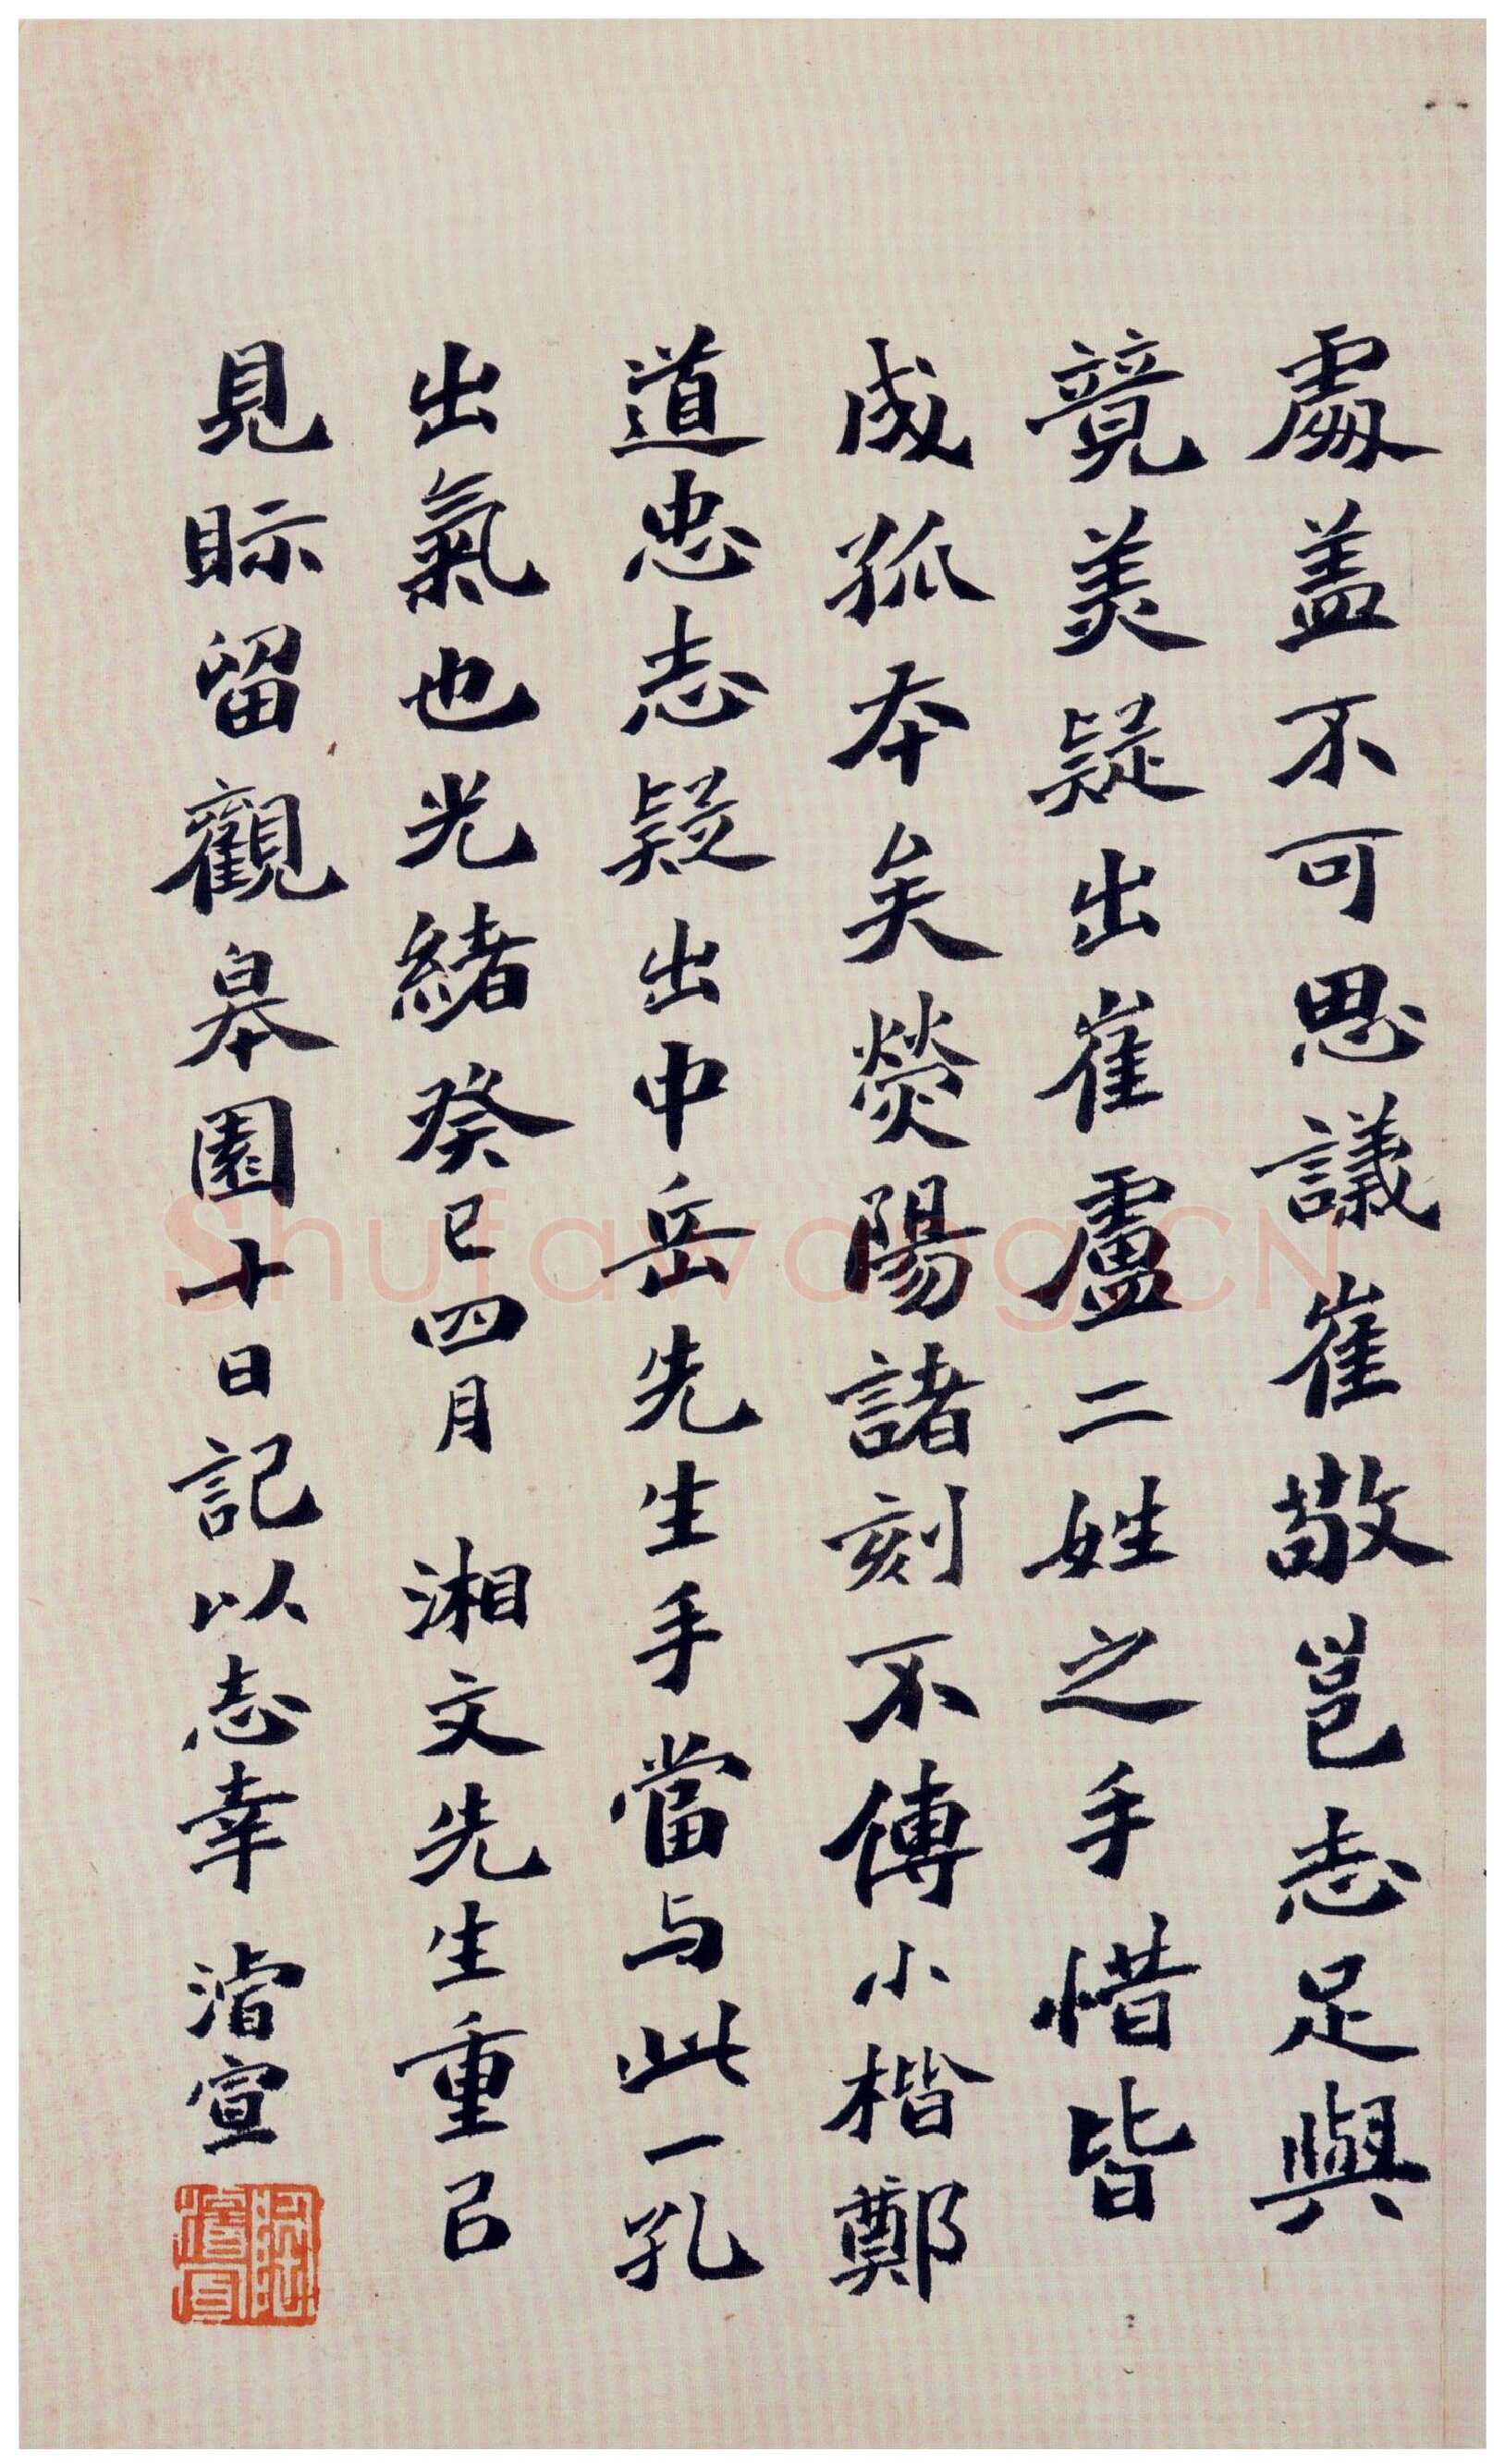 處盖不可思議崔敬邕志足與
競美疑出崔盧二姓之手惜皆
成孤本矣熒陽諸刻不傳小楷鄭
道忠志疑出中岳先生手當与此一孔
出氣也光緒癸巳四月 湘文先生重已
見眎留觀皋園十日記以志幸 濬宣
Shufawang.CN